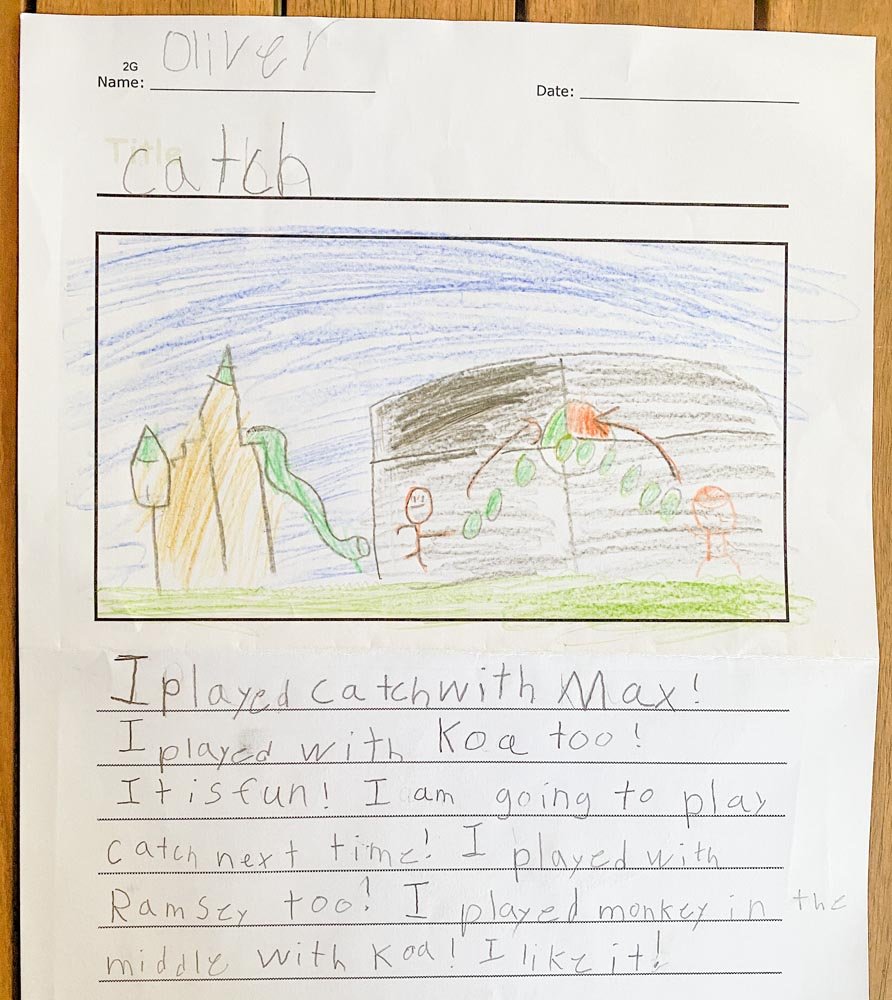 2G
Oliver
Name:
Date:
Title
catch
I played catch with Max!
I played with Koa too!
It is fun! I am going to play
catch next time! I played with
Ramsey too! I played monkey in the
middle with Koa! I like it!